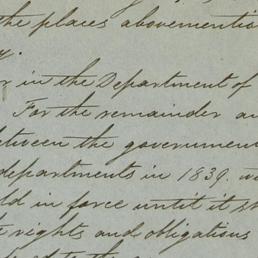 the places abovementio
y.
r in the Department of
For the remainder an
etween the governmen
departments in 1839, w
ld in force until it s
e rights and obligations